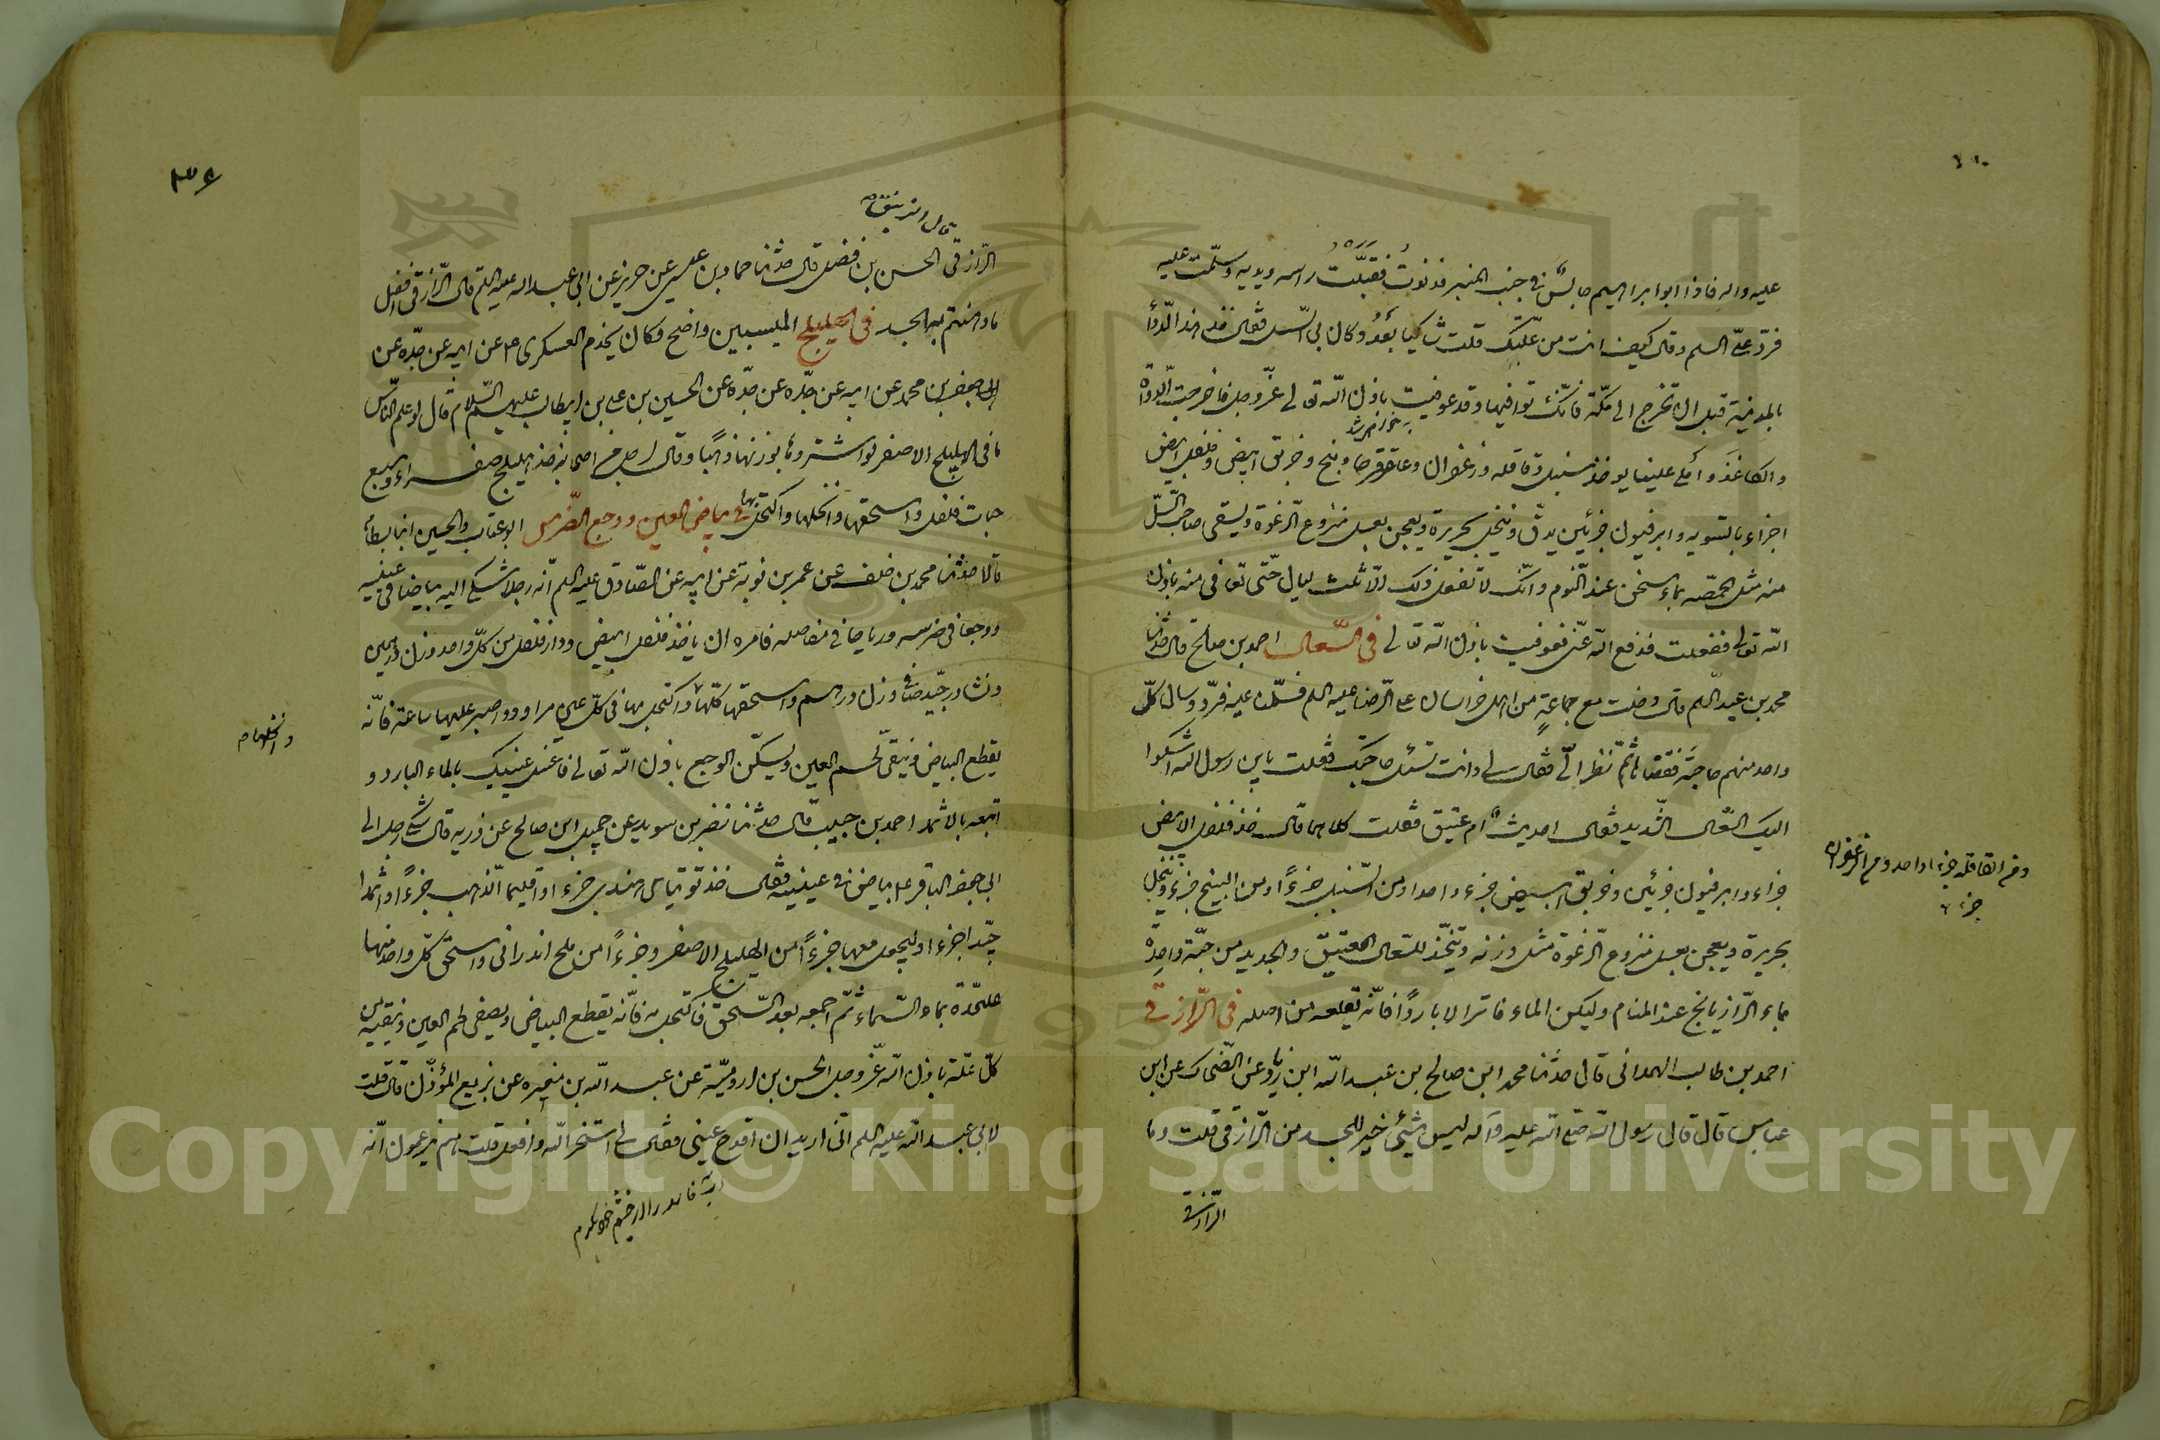 عليه واله فاذا ابو ابراهيم جالس في جنب المنبر فدنوت فقبلت راسه ويديه وسلمت عليه
فرد علي السلم وقال كيف انت من علتك قلت شاكيا بعد وكان بي السل فقال خذ هذا الدوا
بالمدينة قبل ان تخرج الى مكة فانك توافيها وقد عوفيت باذن الله تعالى عز وجل فاخرجت الدواة
والكاغذ وأملى علينا يوخذ سنبل وقاقله وزعفران وعاقرقرحا وبنج وخربق ابيض وفلفل ابيض
اجزاء بالسويه وابرفيون جزئين يدق وينخل بحريرة ويعجن بعسل منزوع الرغوة ويسقى صاحب السل
منه مثل الحمصه بماء سخن عند النوم وانك لا تفعل ذلك الا ثلث ليال حتى تعافى منه باذن
الله تعالى ففعلت فدفع الله عني فعوفيت باذن الله تعالى في السعال احمد بن صالح قال حدثنا
محمد بن عبد السلم قال دخلت مع جماعة من اهل خراسان على الرضا عليه السلم فسلمنا عليه فرد وسال كل
واحد منهم حاجة فقضاها ثم نظر الي فقال لي وانت تسئل حاجتك فقلت يابن رسول الله اشكوا
اليك السعال الشديد فقال احديث ام عتيق فقلت كلاهما قال خذ فلفل ابيض
جزاء وابرفيون جزئين وخربق ابيض جزء واحدا ومن السنبل جزءا ومن البنج جزء وينخل
ومن القاقله جزءا واحد ومن الزعفران
جزء
بحريرة ويعجن بعسل منزوع الرغوة مثل وزنه ويتخذ للسعال العتيق والجديد من حبة واحدة
بماء الرازيانج عند المنام وليكن الماء فاترا لا باردا فانه يقلعه من اصله في الرازقي
احمد بن طالب الهمداني قال حدثنا محمد ابن صالح بن عبد الله ابن زياد عن الضحاك عن ابن
عباس قال قال رسول الله صلى الله عليه وآله ليس شيئ خير للجسد من الرازقي قلت وما
الرازقي
٣٤
قال الزنبق
الرازقي الحسن بن فضل قال حدثنا حماد بن عيسى عن حريز عن ابي عبد الله عليه السلم قال الرازقي افضل
ما دهنتم به الجسد في الهليلج المسيب بن واضح وكان يخدم العسكري ع عن ابيه عن جده عن
جعفر بن محمد عن ابيه عن جده عن جده عن الحسين بن علي بن ابيطالب عليهم السلام قال لو علم الناس
ما في الهليلج الاصفر لو اشتروها بوزنها ذهبا وقال لرجل من اصحابه خذ هليلج صفراء وسبع
حبات فلفل واسحقها وانخلها واكتحل بها في بياض العين ووجع الضرس ابو عتاب والحسين ابنا بسطام
قالا حدثنا محمد بن خلف عن عمر بن توبة عن ابيه عن الصادق عليه السلم انه رجلا شكى اليه بياضا في عينيه
ووجعا في ضرسه ورياحا في مفاصله فامره ان ياخذ فلفل ابيض ودار فلفل من كل واحد وزن درهمين
ونشادر جيد صاف وزن درهم واسحقها كلها واكتحل بها في كل عين مراود واصبر عليها ساعة فانه
وانخلها م
يقطع البياض وينقي لحم العين ويسكن الوجع باذن الله تعالى فاغسل عينيك بالماء البارد و
اتبعه بالاثمد احمد بن حبيب قال حدثنا نضر بن سويد عن جميل ابن صالح عن ذريه قال شكى رجل الى
ابي جعفر الباقر ع بياض في عينيه فقال خذ توتياس هندي جزء واقليميا الذهب جزءا واثمدا
جيد اجزءا وليجعل معها جزءا من الهليلج الاصفر وجزءا من ملح اندراني واسحق كل واحد منها
علىحدة بماء السماء ثم اجمعه بعد السحق فاكتحل به فانه يقطع البياض ويصفي لحم العين وينقيه من
كل علة باذن الله عز وجل الحسن بن ارومية عن عبد الله بن مغيره عن بزيع المؤذن قال قلت
لابي عبد الله عليه السلم اني اريد ان اقدح عيني فقال لي استخر الله وافعل قلت هم يزعمون انه